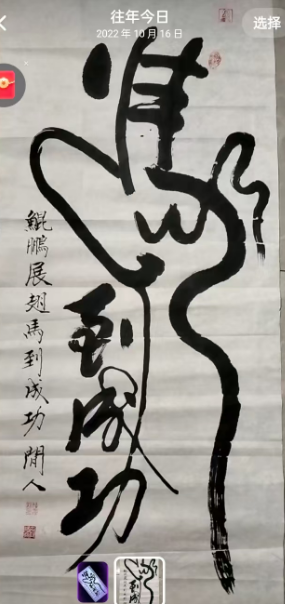 往年今日
2022年10月16日
选择
馬到成功
鯤鵬展翅馬到成功 閒人